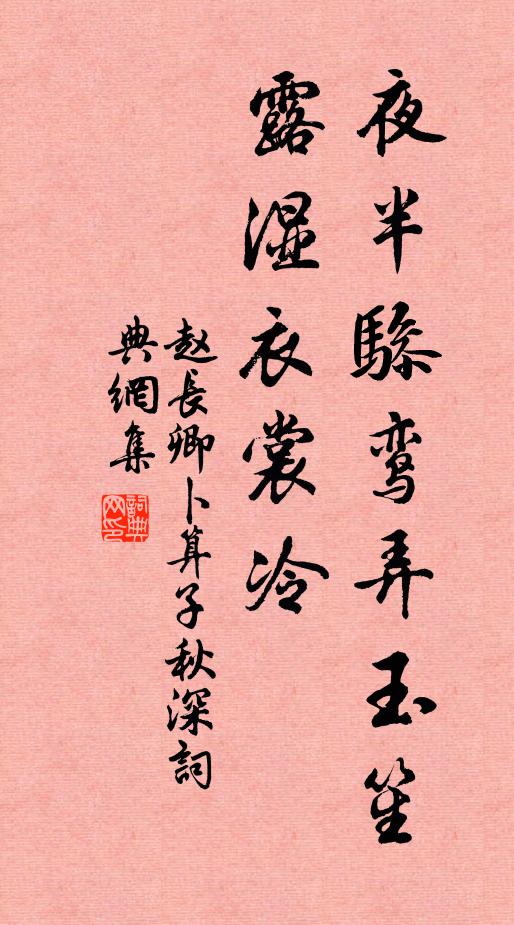 夜半驂鸾弄玉笙
露湿衣裳冷
赵長卿卜算子秋深詞
典網集
詞典网印